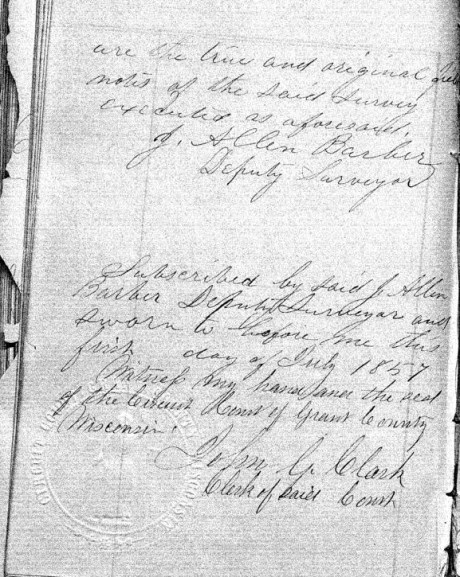 are the true and original field
notes of the said survey
executed as aforesaid.
J. Allen Barber
Deputy Surveyor
Subscribed by said J. Allen
Barber Deputy Surveyor and
sworn to before me this
first day of July 1857
Witness my hand and the seal
of the Circuit Court of Grant County
Wisconsin.
John G. Clark
Clerk of said Court